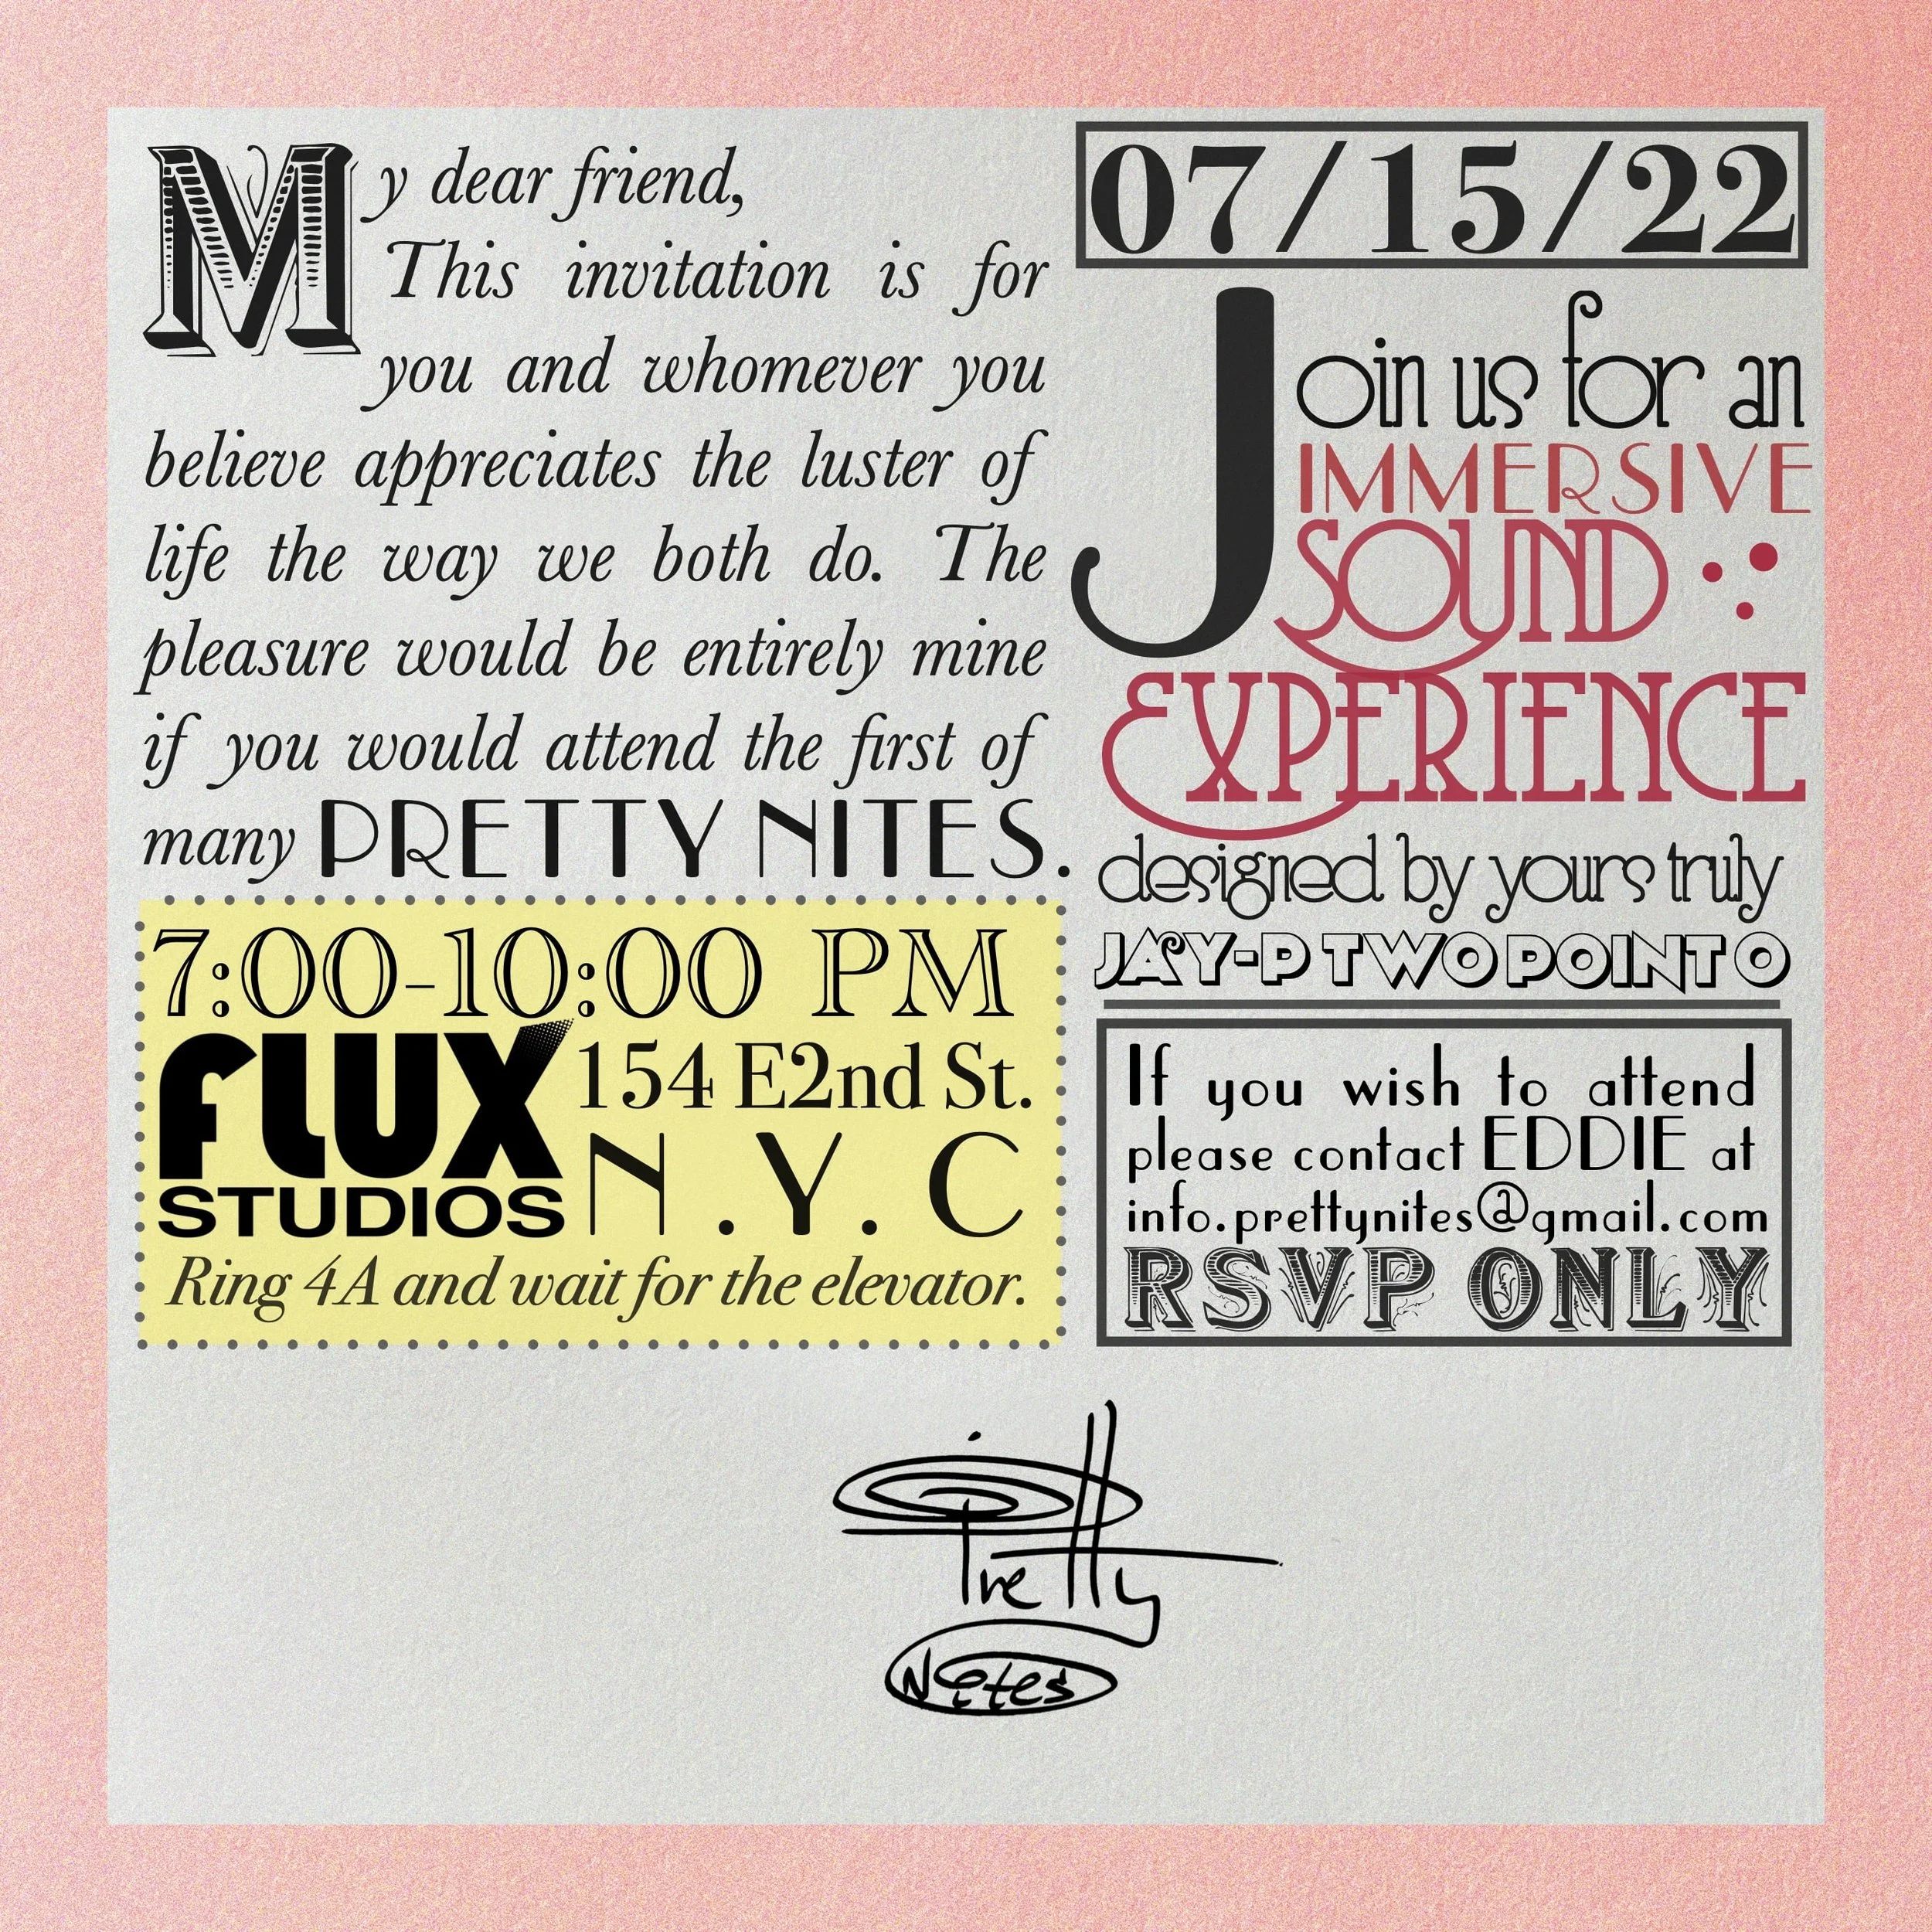 My dear friend,
This invitation is for
you and whomever you
believe appreciates the luster of
life the way we both do. The
pleasure would be entirely mine
if you would attend the first of
many PRETTY NITES.
7:00-10:00 PM
fLUX
STUDIOS
154 E2nd St.
N.Y.C
Ring 4A and wait for the elevator.
07/15/22
Join us for an
IMMERSIVE
SOUND
EXPERIENCE
designed by yours truly
JAY-P TWO POINT O
If you wish to attend
please contact EDDIE at
info.prettynites@gmail.com
RSVP ONLY
Pretty
Nites